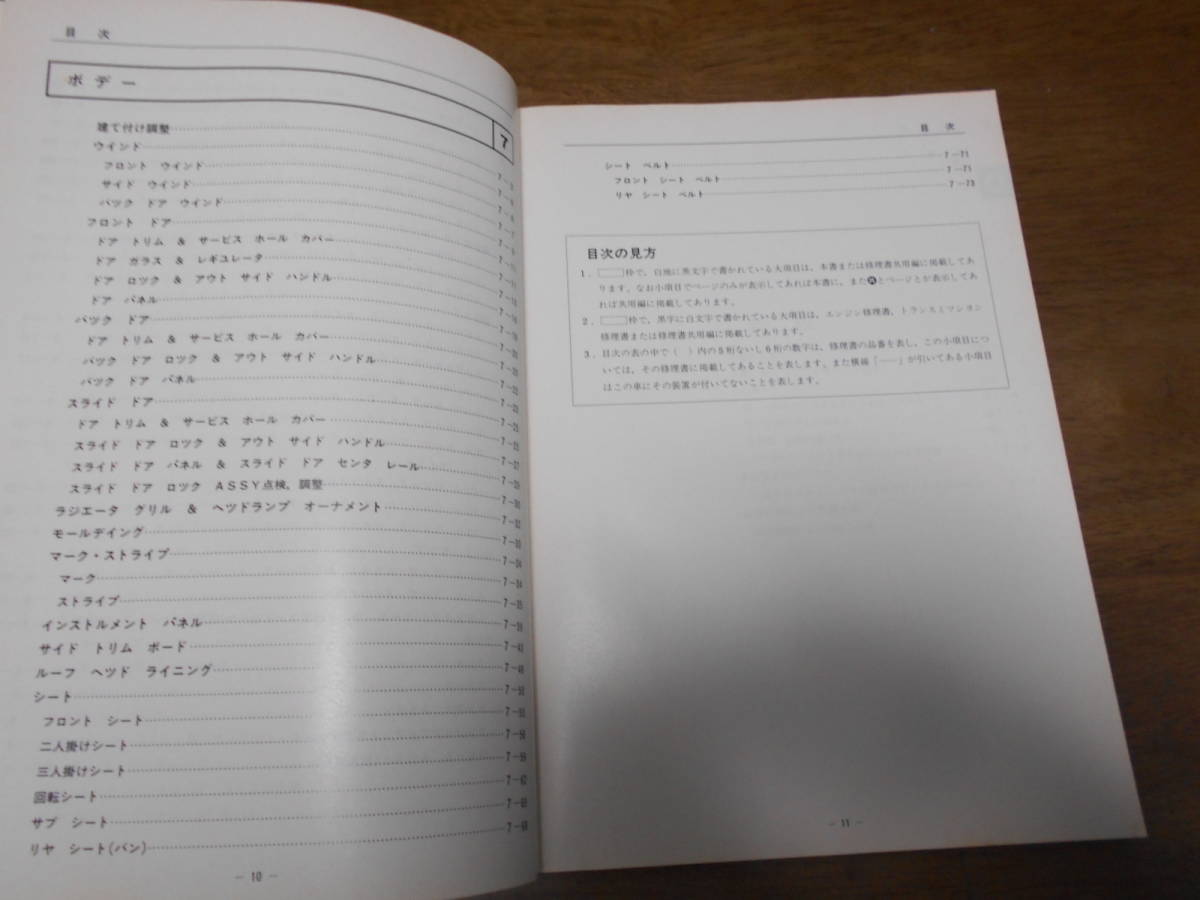 目 次
ボデー
7
建て付け調整
ウインド
フロント ウインド
サイド ウインド
バツク ドア ウインド
フロント ドア
ドア トリム & サービス ホール カバー
ドア ガラス & レギユレータ
ドア ロツク & アウト サイド ハンドル
ドア パネル
バツク ドア
ドア トリム & サービス ホール カバー
バツク ドア ロツク & アウト サイド ハンドル
バツク ドア パネル
スライド ドア
ドア トリム & サービス ホール カバー
スライド ドア ロツク & アウト サイド ハンドル
スライド ドア パネル & スライド ドア センタ レール
スライド ドア ロツク ASSY点検、調整
ラジエータ グリル & ヘツドランプ オーナメント
モールデイング
マーク・ストライプ
マーク
ストライプ
インストルメント パネル
サイド トリム ボード
ルーフ ヘツド ライニング
シート
フロント シート
二人掛けシート
三人掛けシート
回転シート
サブ シート
リヤ シート(バン)
— 10 —
目 次
シート ベルト 7—71
フロント シート ベルト 7—71
リヤ シート ベルト 7—73
目次の見方
1. 枠で、白地に黒文字で書かれている大項目は、本書または修理書共用編に掲載してあ
ります。なお小項目でページのみが表示してあれば本書に、また とページとが表示してあ
れば共用編に掲載してあります。
2. 枠で、黒字に白文字で書かれている大項目は、エンジン修理書、トランスミツシヨン
修理書または修理書共用編に掲載してあります。
3. 目次の表の中で( )内の5桁ないし6桁の数字は、修理書の品番を表し、この小項目につ
いては、その修理書に掲載してあることを表します。また横線「——」が引いてある小項目
はこの車にその装置が付いてないことを表します。
— 11 —